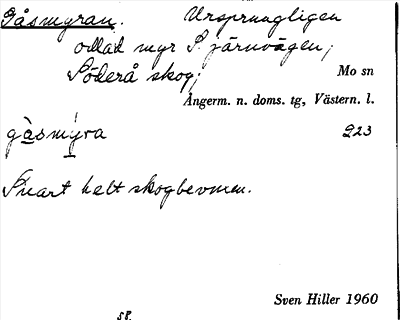 Gåsmyran. Ursprungligen
odlad myr S. järnvägen,
Söderå skog; Mo sn
Ångerm. n. doms. tg, Västern. l.
gåsmyra 223
Snart helt skogbevuxen.
Sven Hiller 1960
58.